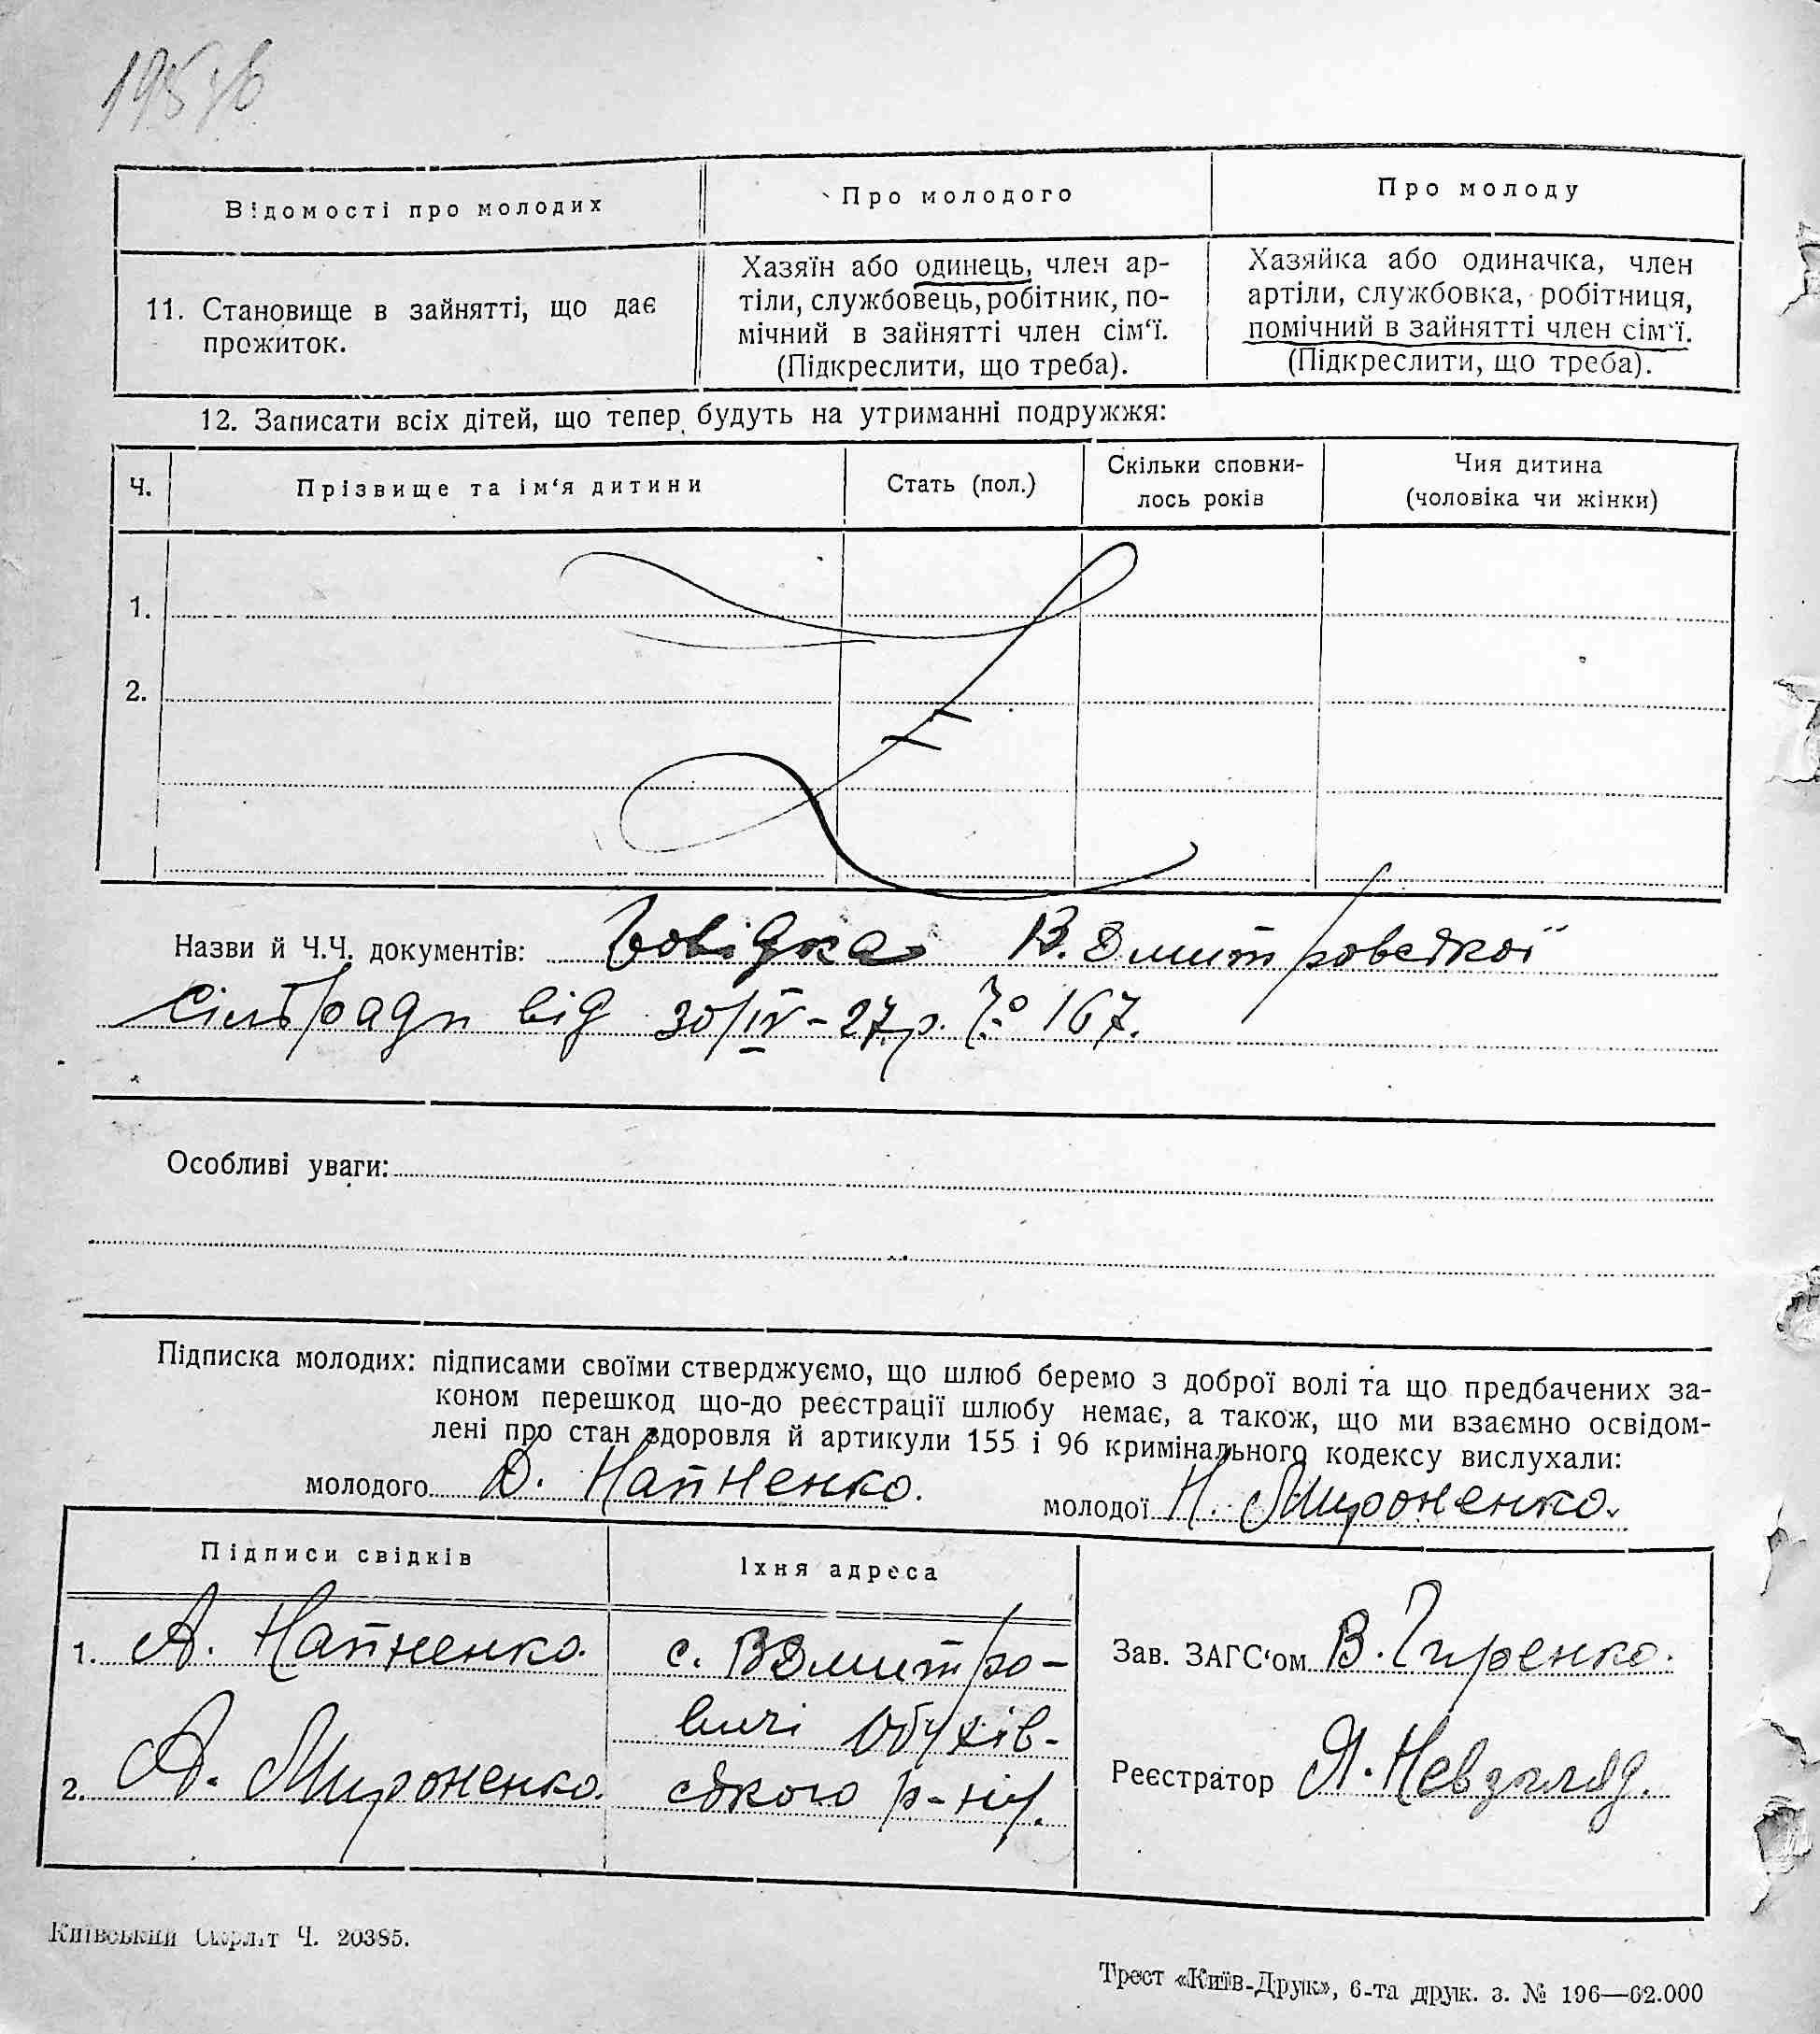 195 зв
Відомості про молодих
Про молодого
Про молоду
11. Становище в зайнятті, що дає
прожиток.
Хазяїн або одинець, член ар-
тіли, службовець, робітник, по-
мічний в зайнятті член сім'ї.
(Підкреслити, що треба).
Хазяйка або одиначка, член
артіли, службовка, робітниця,
помічний в зайнятті член сім'ї.
(Підкреслити, що треба).
12. Записати всіх дітей, що тепер будуть на утриманні подружжя:
Ч.
Прізвище та ім'я дитини
Стать (пол.)
Скільки сповни-
лось років
Чия дитина
(чоловіка чи жінки)
1.
2.
Назви й Ч.Ч. документів: Довідка В. Дмитровської
Сільради від 30/IV - 27 р. № 167.
Особливі уваги:
Підписка молодих: підписами своїми стверджуємо, що шлюб беремо з доброї волі та що предбачених за-
коном перешкод що-до реєстрації шлюбу немає, а також, що ми взаємно освідом-
лені про стан здоровля й артикули 155 і 96 кримінального кодексу вислухали:
молодого Д. Напненко.
молодої Н. Мироненко.
Підписи свідків
Їхня адреса
1. А. Напненко.
2. А. Мироненко.
с. ВДмитро-
вичі Обухів-
ського р-ну.
Зав. ЗАГС'ом В. Гиренко.
Реєстратор Я. Невзгляд.
Київський Окрліт Ч. 20385.
Трест «Київ-Друк», 6-та друк. з. № 196—62.000